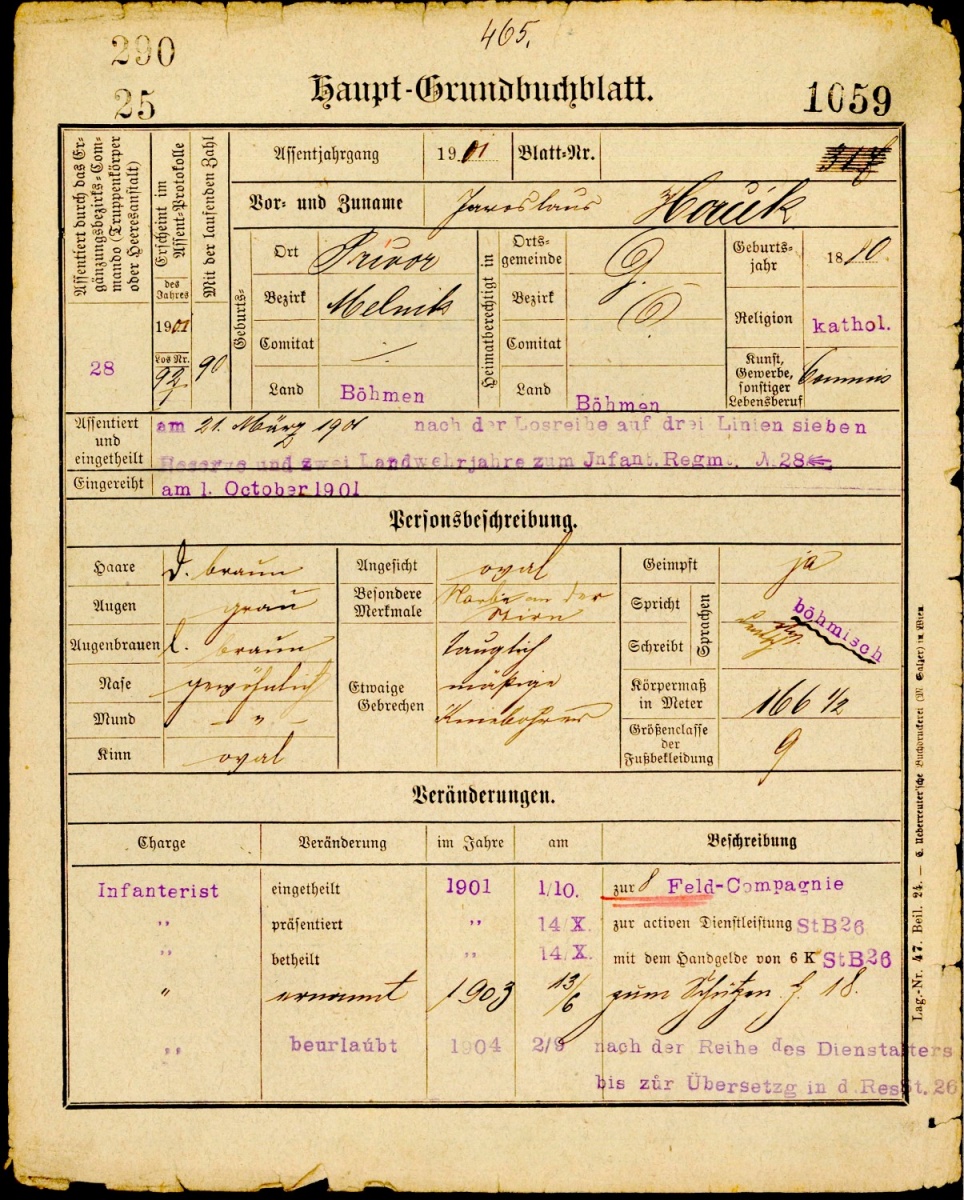 465.
290
25
Haupt-Grundbuchblatt.
1059
Assentiert durch das Er-
gänzungsbezirks-Com-
mando (Truppenkörper
oder Heeresanstalt)
28
Erscheint im
Assent-Protokolle
des
Jahres
1901
Los Nr.
92
1
Mit der laufenden Zahl
90
Assentjahrgang 1901 Blatt-Nr. 317
Vor- und Zuname Jaroslaus
Geburts-
Ort
Bezirk Melnik
Comitat
Land Böhmen
Heimatberechtigt in
Orts-
gemeinde
Bezirk
Comitat
Land Böhmen
Geburts-
jahr 1880
Religion kathol.
Kunst,
Gewerbe,
sonstiger
Lebensberuf Commis
Assentiert
und
eingetheilt
am 21. März 1901 nach der Losreihe auf drei Linien sieben
Reserve und zwei Landwehrjahre zum Jnfant. Regmt. N.28
Eingereiht am 1. October 1901
Personsbeschreibung.
Haare d. braun
Augen grau
Augenbrauen l. braun
Nase gewöhnlich
Mund - " -
Kinn oval
Angesicht oval
Besondere
Merkmale
Narbe an der
Stirn
Etwaige
Gebrechen
tauglich
mäßige
Kniebohrer
Geimpft ja
Spricht
Schreibt
Sprachen
böhmisch
Körpermaß
in Meter 166 1/2
Größenclasse
der
Fußbekleidung 9
Veränderungen.
Charge Veränderung im Jahre am Beschreibung
Infanterist eingetheilt 1901 1/10. zur 8 Feld-Compagnie
,, präsentiert ,, 14/X. zur activen Dienstleistung StB26
,, betheilt ,, 14/X. mit dem Handgelde von 6 K StB26
" ernannt 1903 13/6 zum Schützen 18.
,, beurlaubt 1904 2/9 nach der Reihe des Dienstalters
bis zur Übersetzg in d. Res St. 26
Lag.-Nr. 47. Beil. 24. — C. Ueberreuter'sche Buchdruckerei (M. Salzer) in Wien